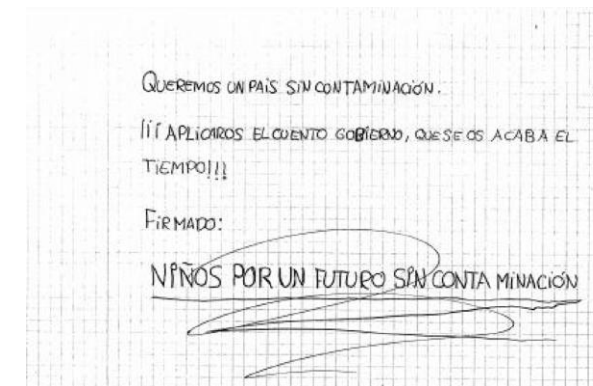 QUEREMOS UN PAÍS SIN CONTAMINACIÓN.
¡¡¡APLICAROS EL CUENTO GOBIERNO, QUE SE OS ACABA EL
TIEMPO!!!
FIRMADO:
NIÑOS POR UN FUTURO SIN CONTAMINACIÓN